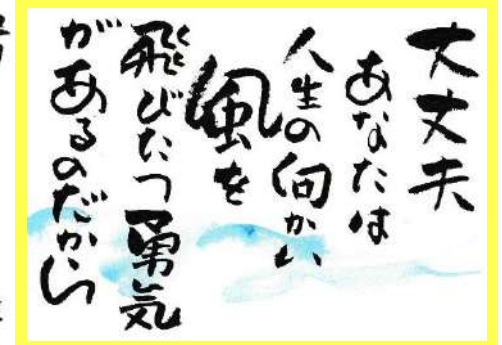 大丈夫
あなたは
人生の向かい
風を
飛びたつ勇気
があるのだから